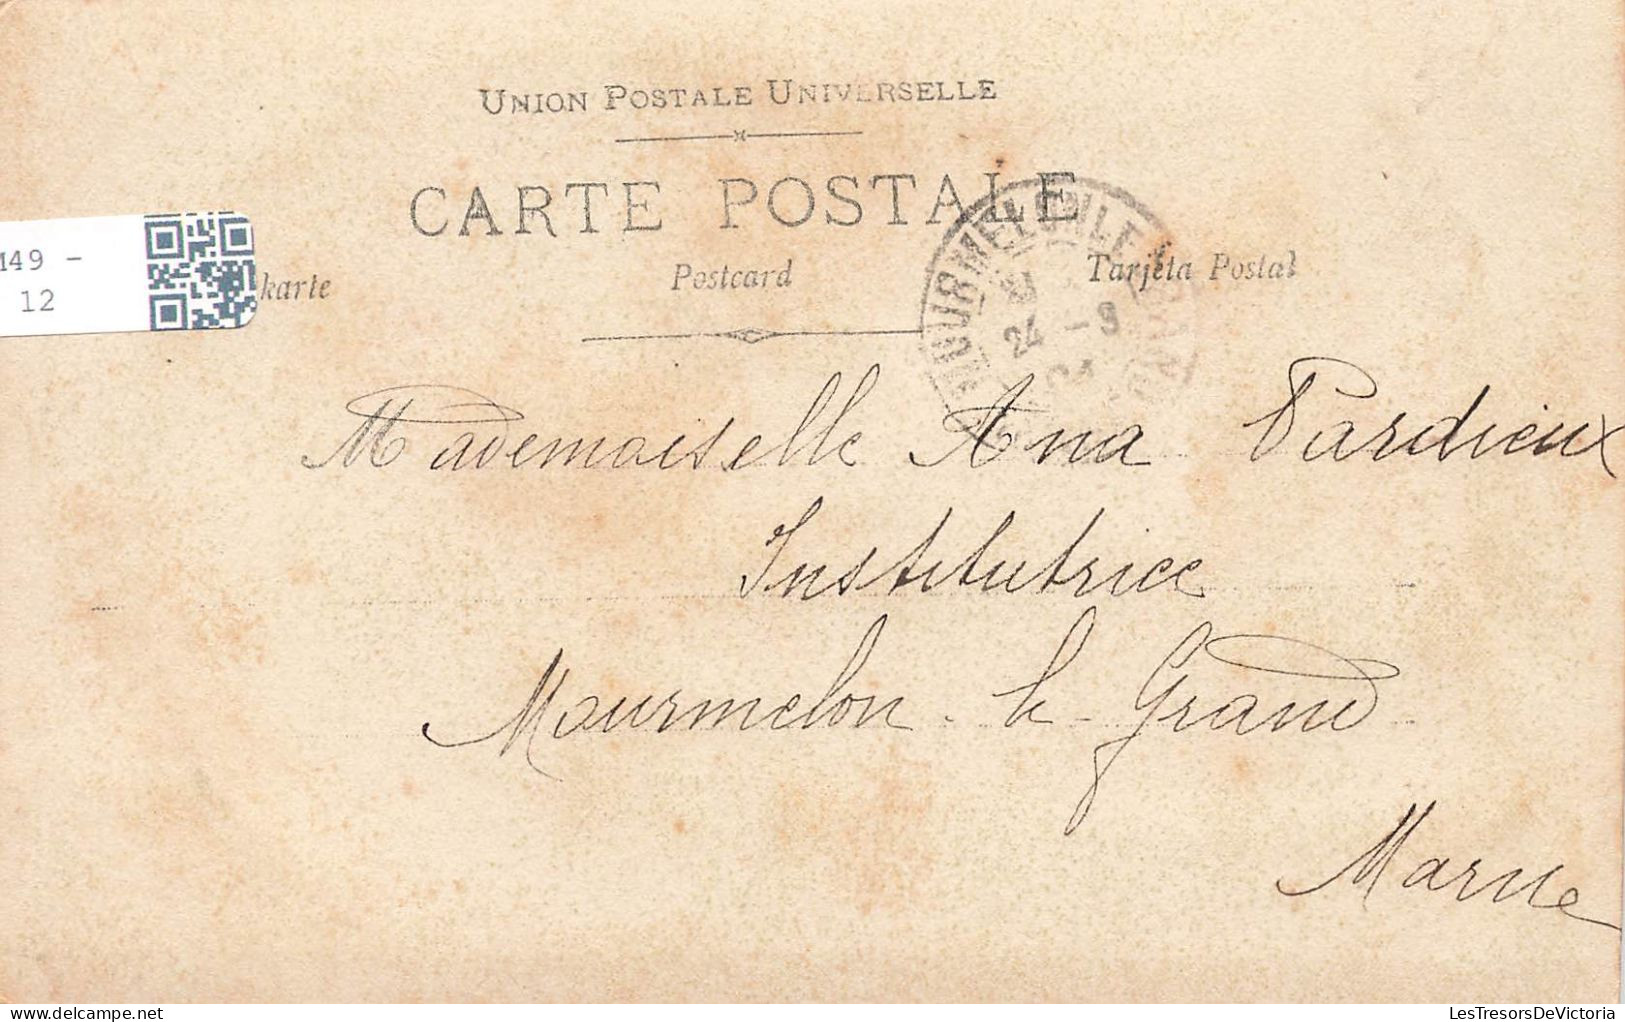 UNION POSTALE UNIVERSELLE
CARTE POSTALE
149 -
12
karte
Postcard
Tarjeta Postal
MOURMELON LE GRAND
24 -9
Mademoiselle Ana Pardieux
Institutrice
Mourmelon - le - Grand
Marne
LesTresorsDeVictoria
delcampe.net